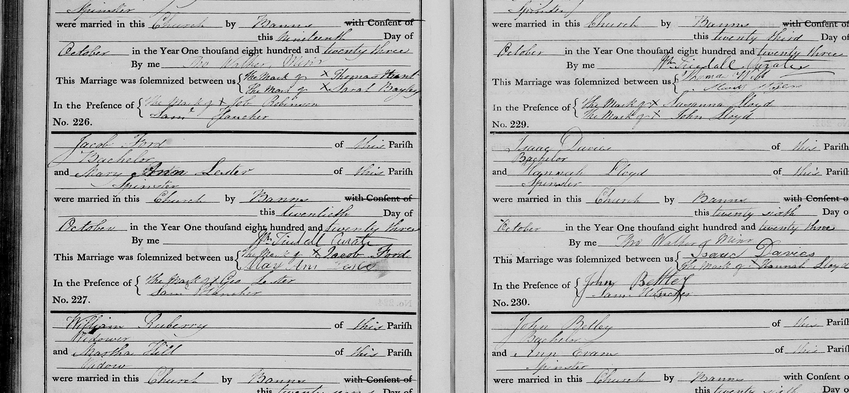 Spinster
were married in this Church by Banns with Consent of
this nineteenth Day of
October in the Year One thousand eight hundred and twenty three
By me Tho Walker, Minr
This Marriage was solemnized between us { The Mark of X Thomas Hunt
The Mark of X Sarah Bayley
In the Presence of { The Mark of X Job Robinson
Saml Hancher
No. 226.
Jacob Ford of this Parish
Bachelor
and Mary Ann Lester of this Parish
Spinster
were married in this Church by Banns with Consent of
this twentieth Day of
October in the Year One thousand eight hundred and twenty three
By me Wm Tindall Curate
This Marriage was solemnized between us { The Mark of X Jacob Ford
Mary Ann
In the Presence of { The Mark of Geo Lester
Saml Hancher
No. 227.
William Ruberry of this Parish
Widower
and Martha Hill of this Parish
Widow
were married in this Church by Banns with Consent of
Day of
Spinster
were married in this Church by Banns with Consent of
this twenty third Day of
October in the Year One thousand eight hundred and twenty three
By me Wm Tindall Curate
This Marriage was solemnized between us { Thomas
In the Presence of { The Mark of X Susanna Lloyd
The Mark of X John Lloyd
No. 229.
Isaac Davies of this Parish
Bachelor
and Hannah Lloyd of this Parish
Spinster
were married in this Church by Banns with Consent of
this twenty sixth Day of
October in the Year One thousand eight hundred and twenty three
By me Tho Walker Minr
This Marriage was solemnized between us { Isaac Davies
The Mark of X Hannah Lloyd
In the Presence of { John Bettley
Saml Hancher
No. 230.
John Betley of this Parish
Bachelor
and Ann Evans of this Parish
Spinster
were married in this Church by Banns with Consent of
this twenty sixth Day of